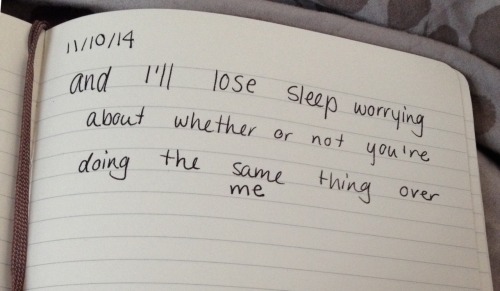 11/10/14
and I'll lose sleep worrying
about whether or not you're
doing the same thing over
me